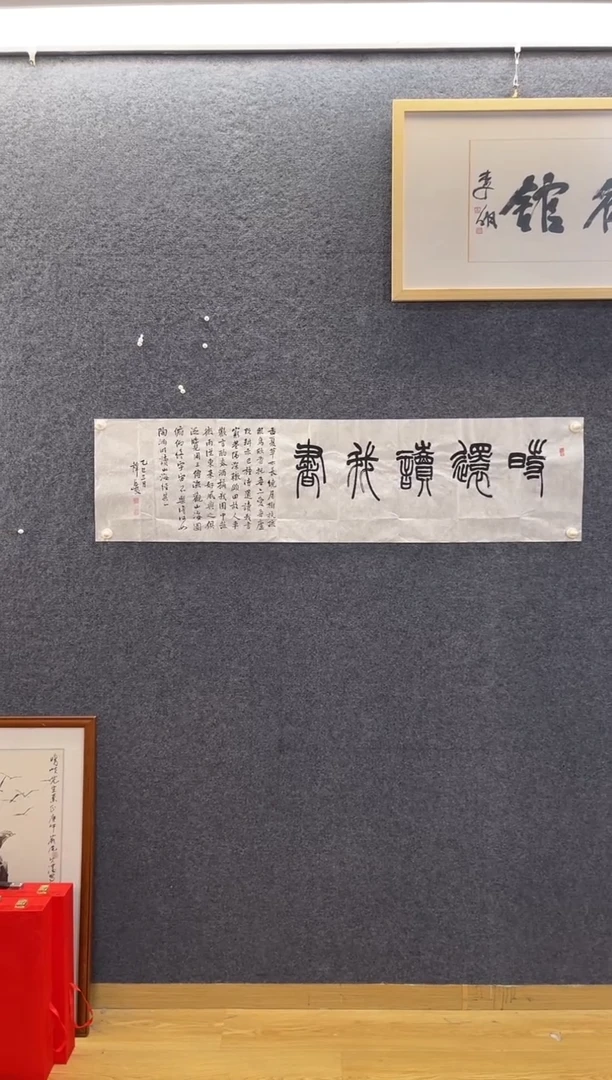 時還讀我書
孟夏草木長繞屋樹扶疏
眾鳥欣有托吾亦愛吾廬
既耕亦已種時還讀我書
窮巷隔深轍頗迴故人車
歡言酌春酒摘我園中蔬
微雨從東來好風與之俱
泛覽周王傳流觀山海圖
俯仰終宇宙不樂復何如
陶淵明讀山海經其一
館